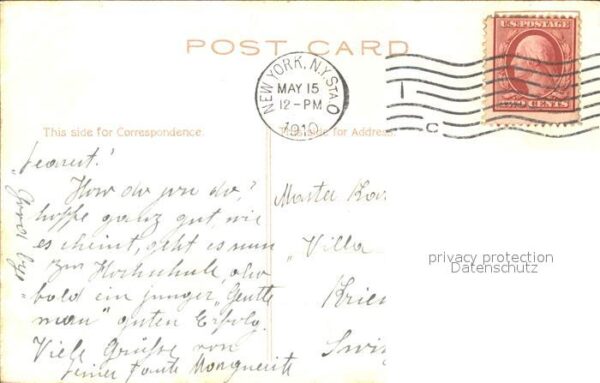 POST CARD
NEW YORK, N.Y. STA. O
MAY 15
12-PM
1910
I
C
U.S. POSTAGE
TWO CENTS
This side for Correspondence.
This side for Address
How do you do,?
hoffe ganz gut, wie
es scheint, geht es nun
zur Hochschule, also
bald ein junger „Gentle
man" guten Erfolg.
Viele Grüsse von
Deiner Tante Marguerite
"Good bye
Master
„Villa
Krien
Swi
privacy protection
Datenschutz